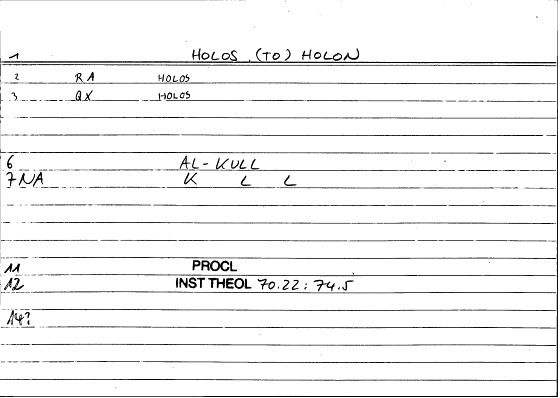 1 HOLOS (TO) HOLON
2 RA HOLOS
3 QX HOLOS
6 AL-KULL
7 NA K L L
11 PROCL
12 INST THEOL 70.22: 74.5
14?